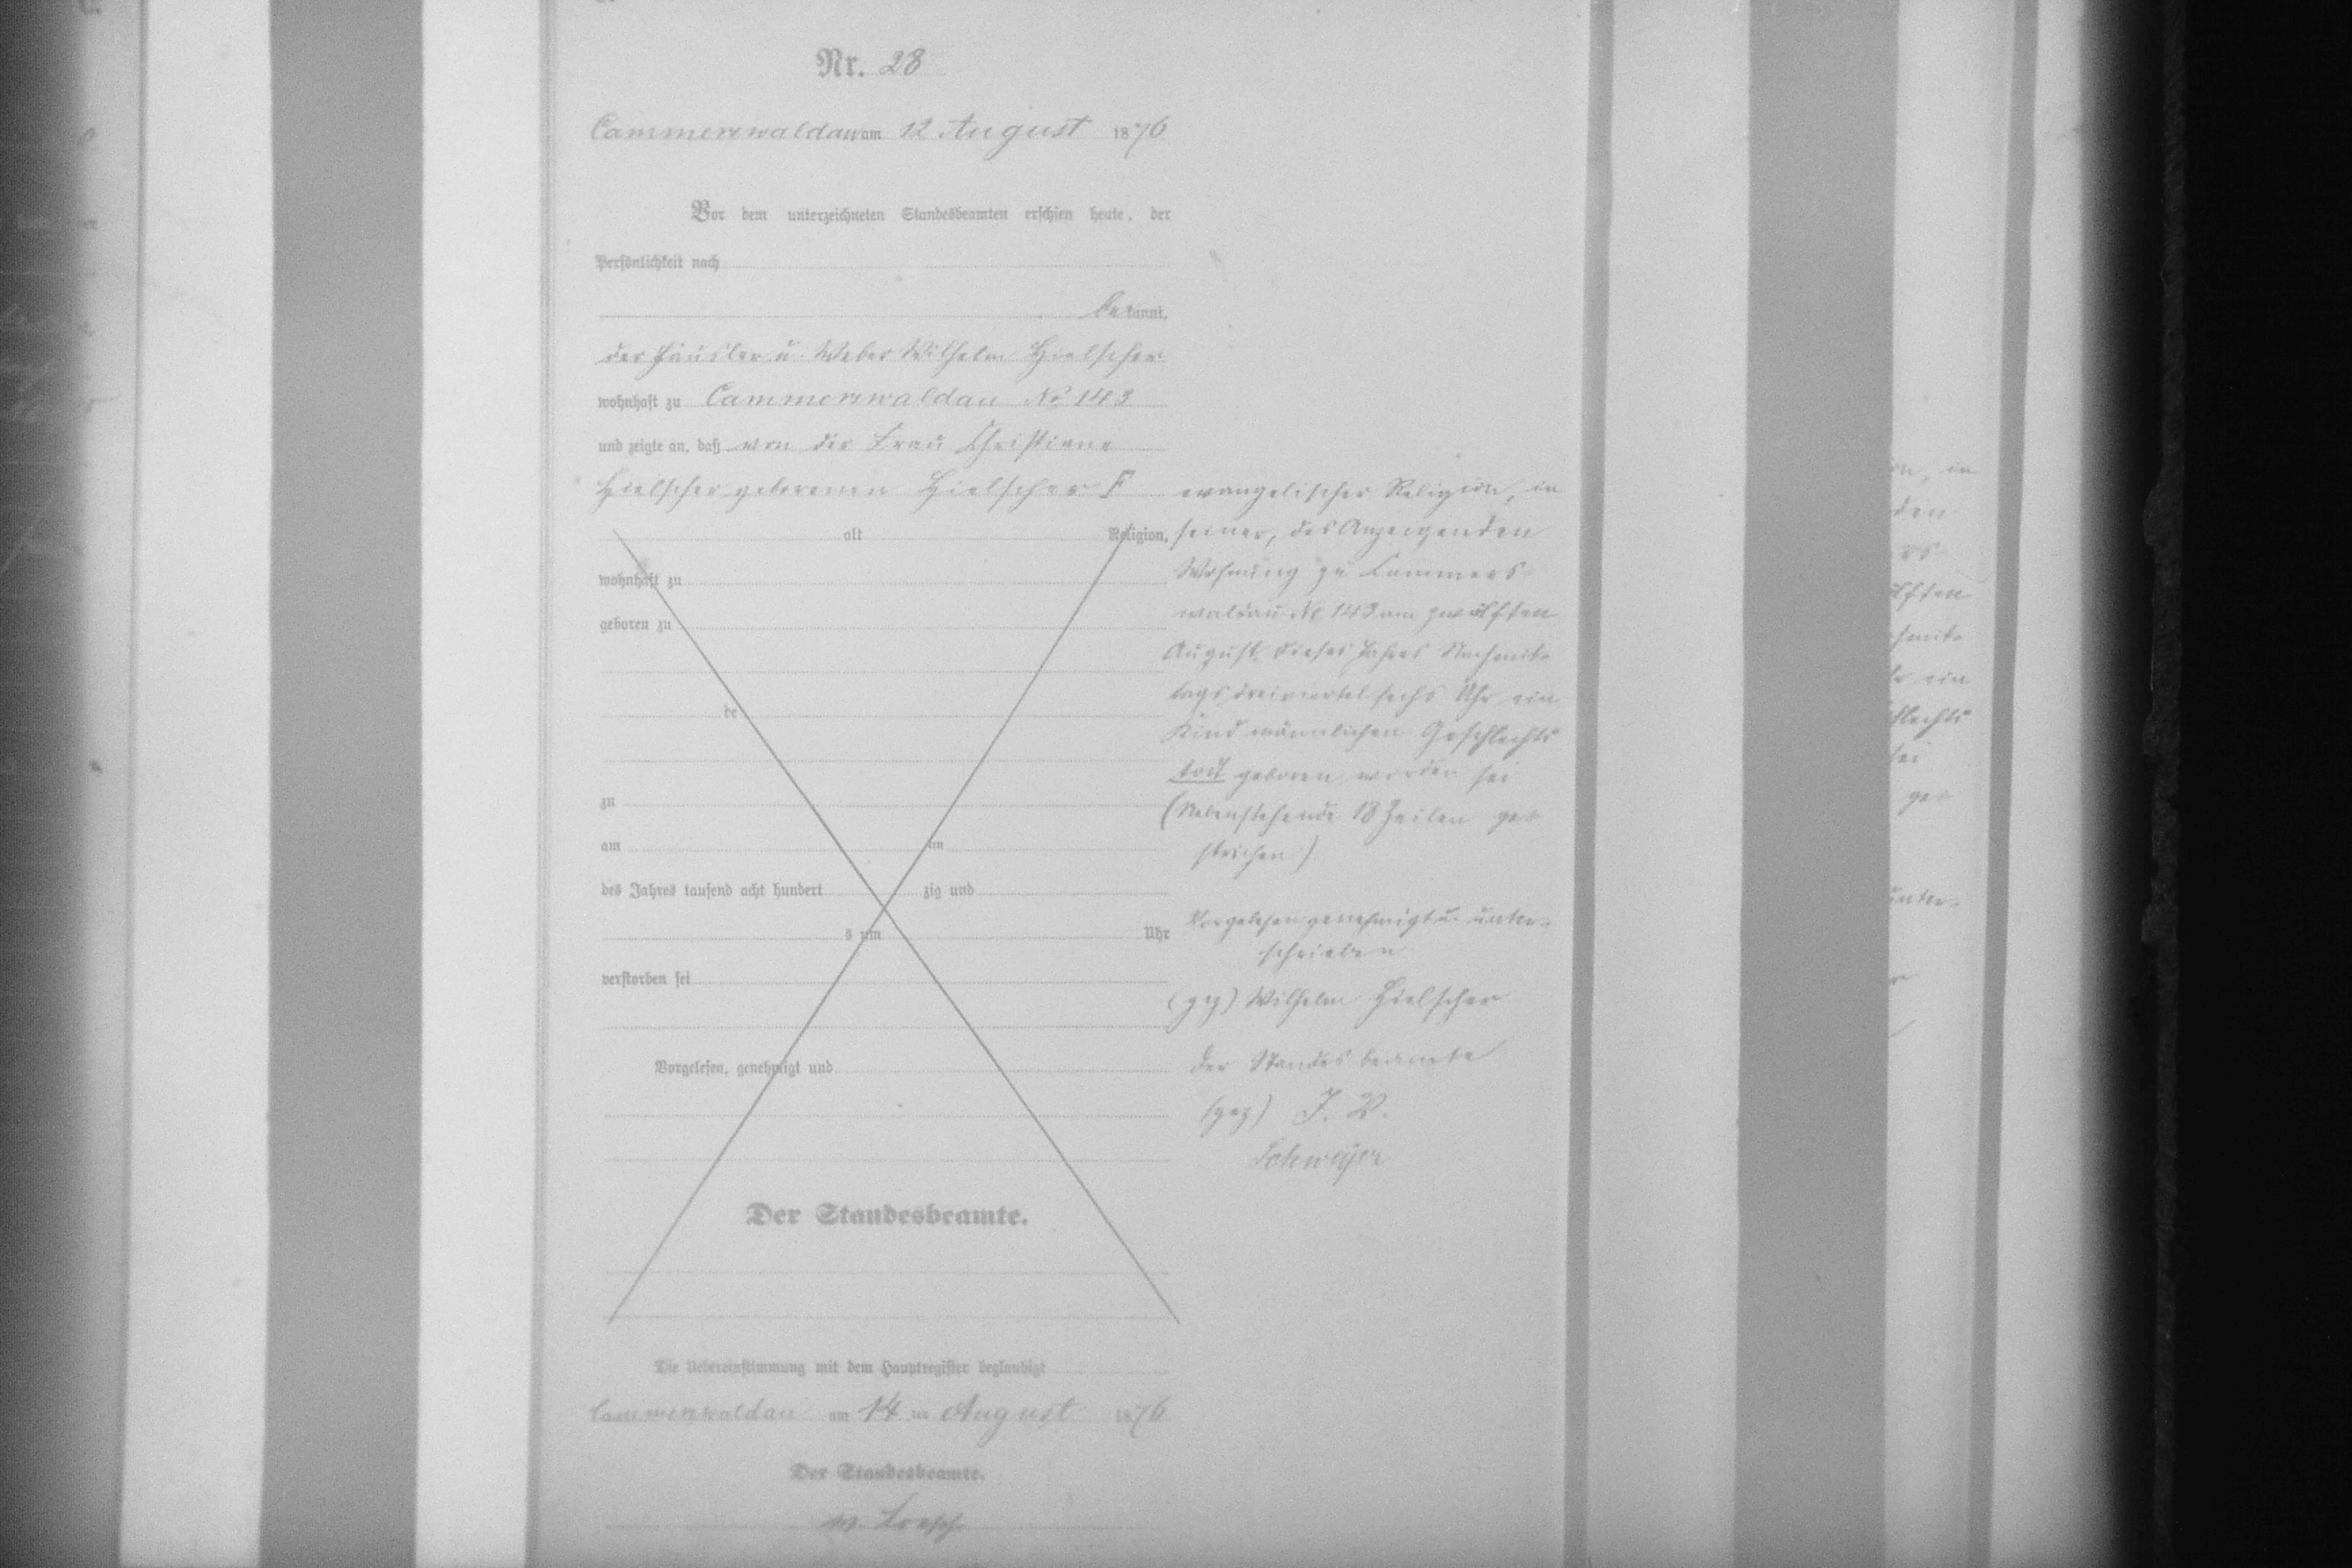 Nr. 28
Cammerswaldau am 12 August 1876
Vor dem unterzeichneten Standesbeamten erschien heute, der
Persönlichkeit nach
bekannt,
der Häusler u. Weber Wilhelm Hielscher
wohnhaft zu Cammerswaldau No 143
und zeigte an, daß von der Frau Christiane
Hielscher geborenen Hielscher F
alt Religion,
wohnhaft zu
geboren zu
de
zu
am ten
des Jahres tausend acht hundert zig und
s um Uhr
verstorben sei
Vorgelesen, genehmigt und
Der Standesbeamte.
evangelischer Religion, in
seiner, des Anzeigenden
Wohnung zu Cammers-
waldau No 143 am zwölften
August dieses Jahres Nachmit-
tags dreiviertel sechs Uhr ein
Kind männlichen Geschlechts
todt geboren worden sei
(Nebenstehende 18 Zeilen ge-
strichen)
Vorgelesen genehmigt u. unter-
schrieben
(gez) Wilhelm Hielscher
Der Standesbeamte
(gez) J. V.
Schweyer
Die Uebereinstimmung mit dem Hauptregister beglaubigt
Cammerswaldau am 14 ten August 1876
Der Standesbeamte.
on, in
den
ers
ölften
chmit-
hr ein
schlechts
sei
ge-
unter-